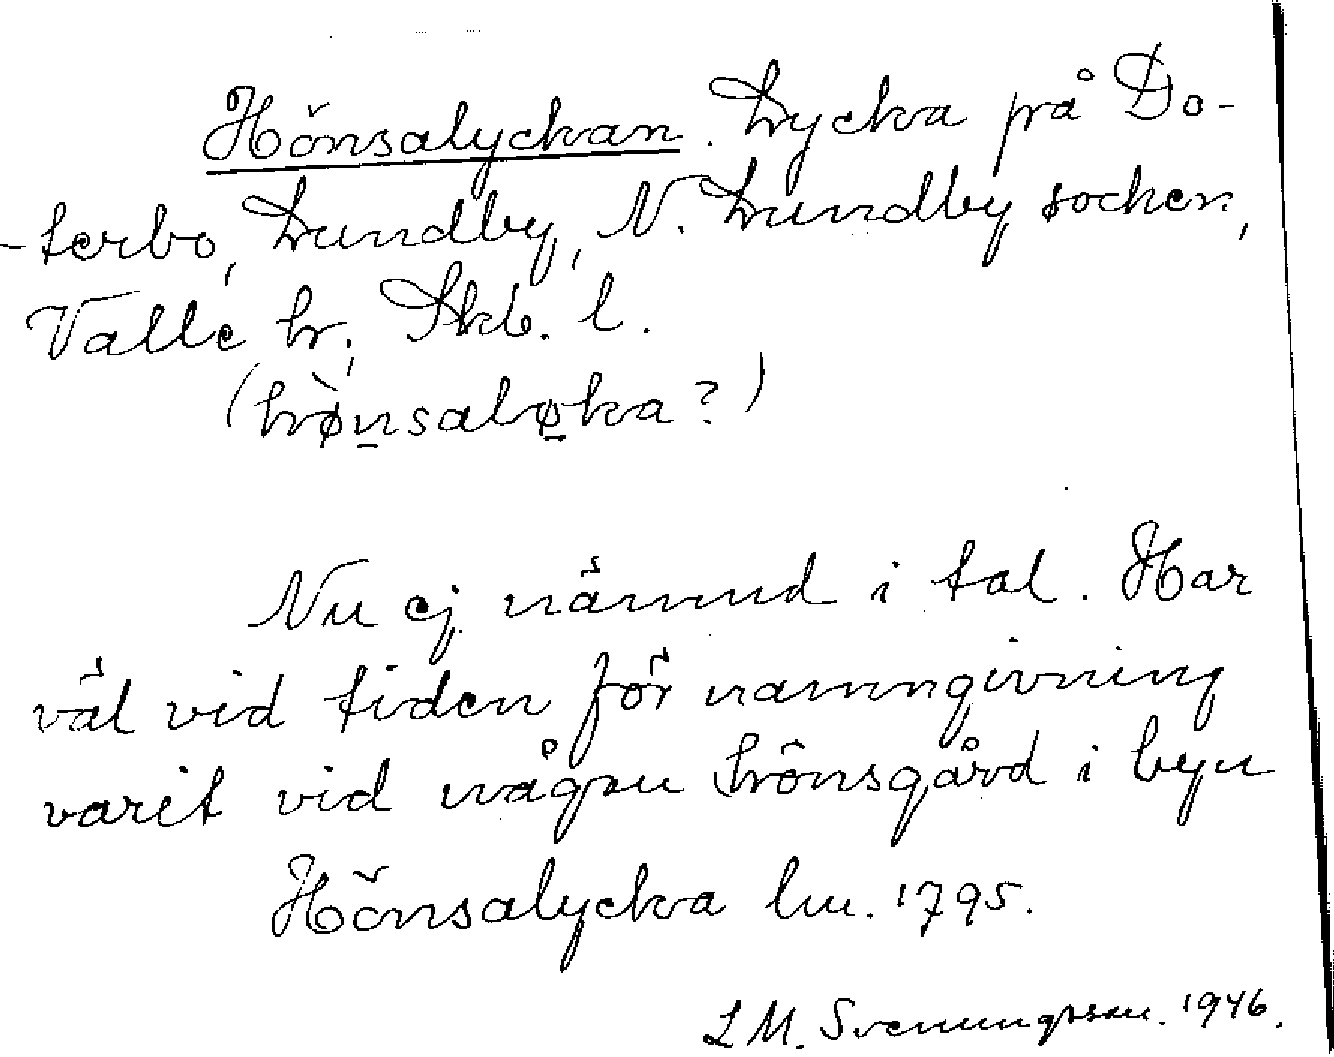 Hönsalyckan. Lycka på Do-
-terbo, Lundby, N. Lundby socken,
Valle hr, Skb. l.
(hø̀nsaløka?)
Nu ej nämnd i tal. Har
väl vid tiden för namngivning
varit vid någon hönsgård i byn
Hönsalycka lm. 1795.
L M. Svenungsson. 1946.